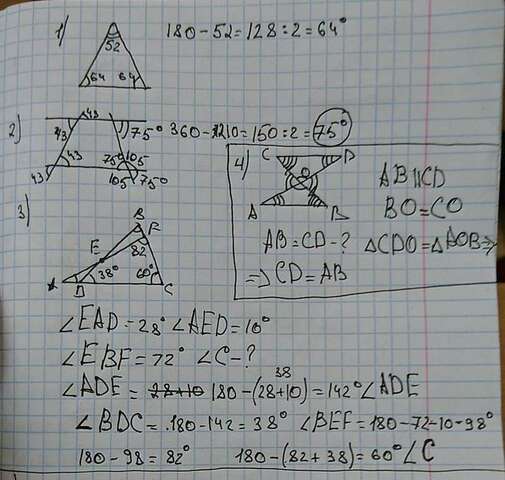 1) 180-52=128:2=64°
52
64 64
2) 43
43 75° 360-210=150:2=75°
43 75° 105
43 105 75°
4) C D
O AB||CD
A B BO=CO
AB=CD-? △CDO=△AOB⇒
⇒CD=AB
3) B
F
E 82
38° 60°
A D C
∠EAD=28° ∠AED=10°
∠EBF=72° ∠C-?
38
∠ADE= 28+10 180-(28+10)=142°∠ADE
∠BDC=180-142=38° ∠BEF=180-72-10-98°
180-98=82° 180-(82+38)=60°∠C